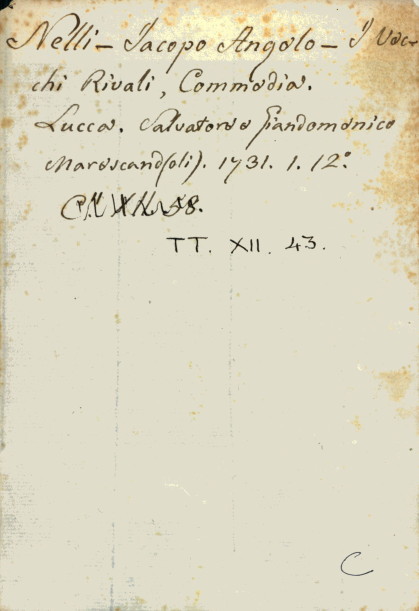 Nelli – Jacopo Angelo – I Vec-
chi Rivali, Commedia.
Lucca. Salvatore e Giandomenico
Marescand(oli). 1731. 1. 12.º
58.
TT. XII. 43.
C